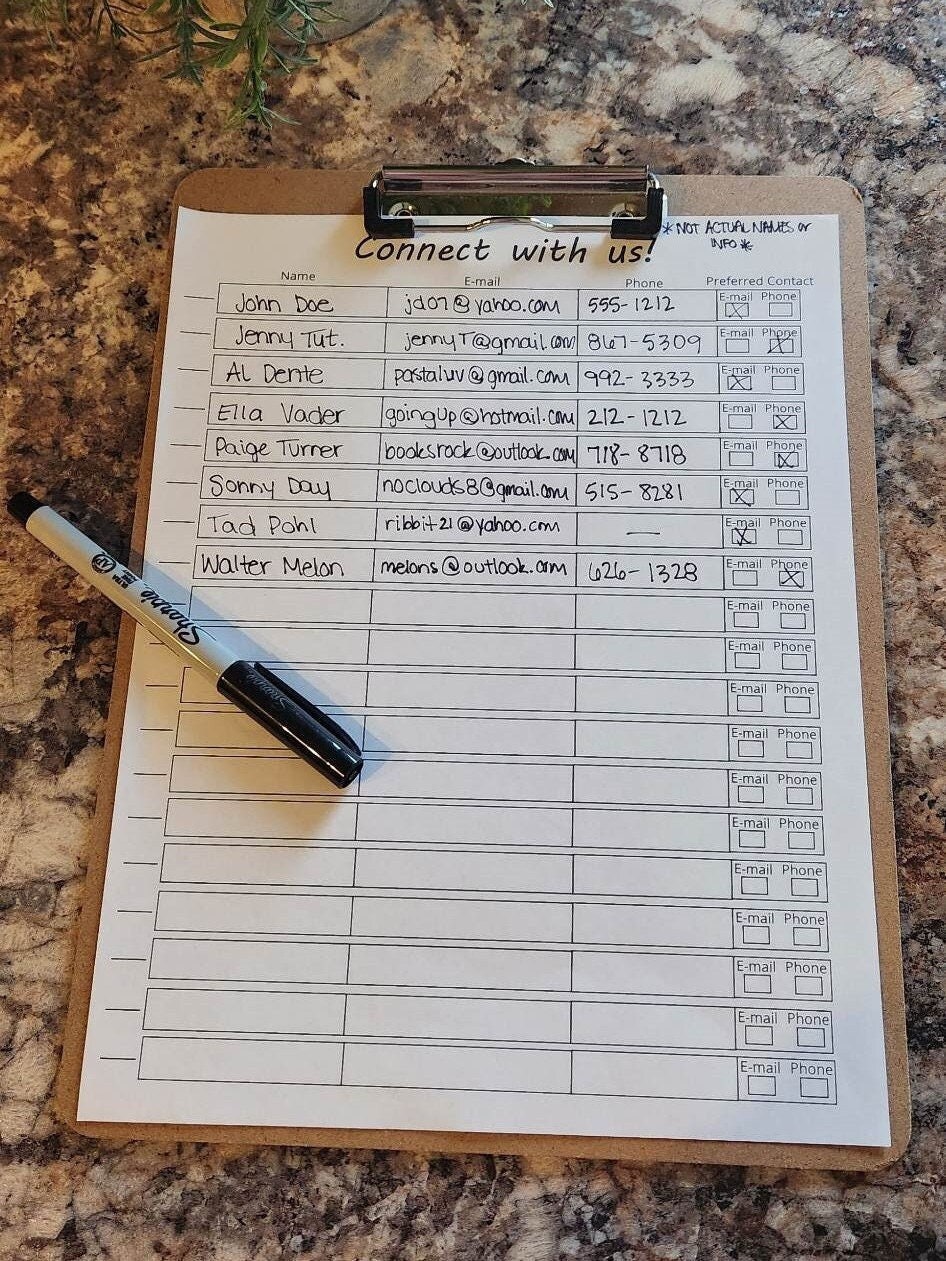 *NOT ACTUAL NAMES or
INFO*
Connect with us!
Name E-mail Phone Preferred Contact
John Doe jd07@yahoo.com 555-1212 E-mail Phone
Jenny Tut. jennyT@gmail.com 867-5309 E-mail Phone
Al Dente pastaluv@gmail.com 992-3333 E-mail Phone
Ella Vader goingup@hotmail.com 212-1212 E-mail Phone
Paige Turner booksrock@outlook.com 718-8718 E-mail Phone
Sonny Day noclouds8@gmail.com 515-8281 E-mail Phone
Tad Pohl ribbit21@yahoo.com — E-mail Phone
Walter Melon melons@outlook.com 626-1328 E-mail Phone
E-mail Phone
E-mail Phone
E-mail Phone
E-mail Phone
E-mail Phone
E-mail Phone
E-mail Phone
E-mail Phone
E-mail Phone
E-mail Phone
E-mail Phone
Sharpie